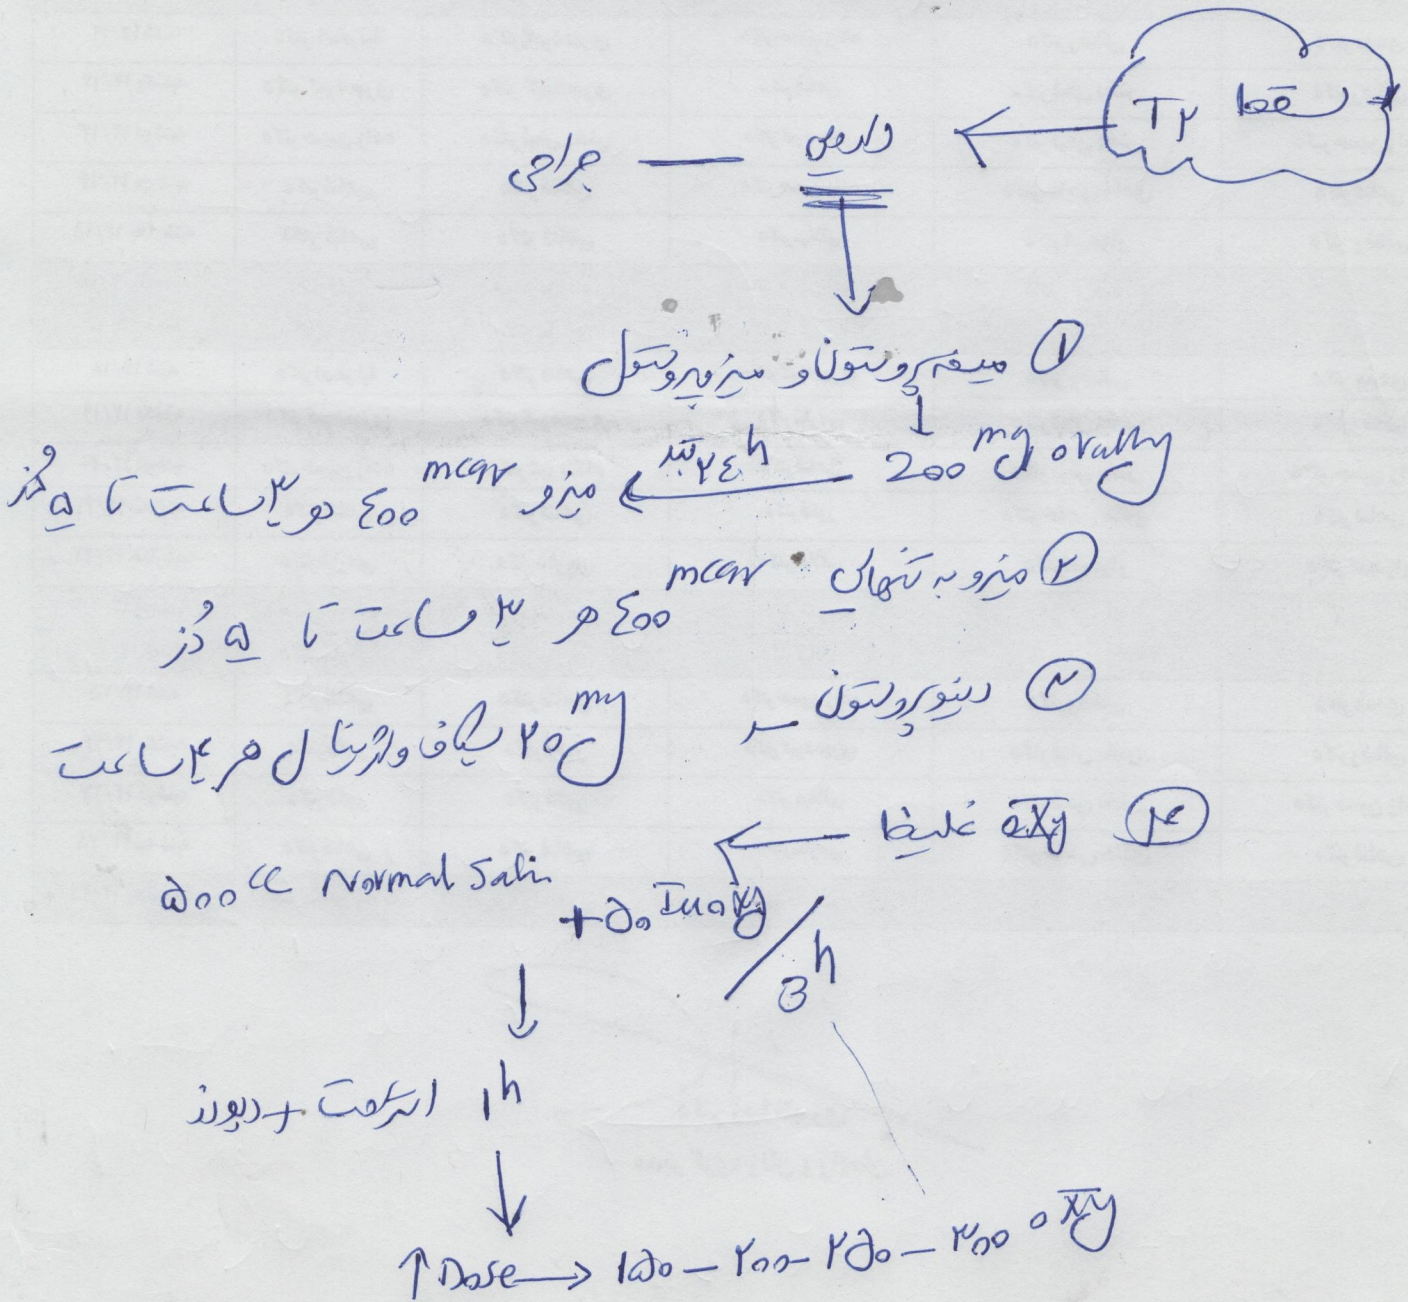 سقط T۲
دارویی — جراحی
① میفه پروستون و میزوپروستول
200 mg orally ۲۴h بعد میزو ۴۰۰ mcgr هر ۳ ساعت تا ۵ دُز
② میزو به تنهایی ۴۰۰ mcgr هر ۳ ساعت تا ۵ دُز
③ دینوپروستون
۲۰ mg شیاف واژینال هر ۴ ساعت
④ oxy غلیظ
۵۰۰ cc Normal Salin + ۵۰ Iu oxy / 3h
۱h استراحت + دیورز
↑ Dose → ۱۵۰ — ۲۰۰ — ۲۵۰ — ۳۰۰ oxy